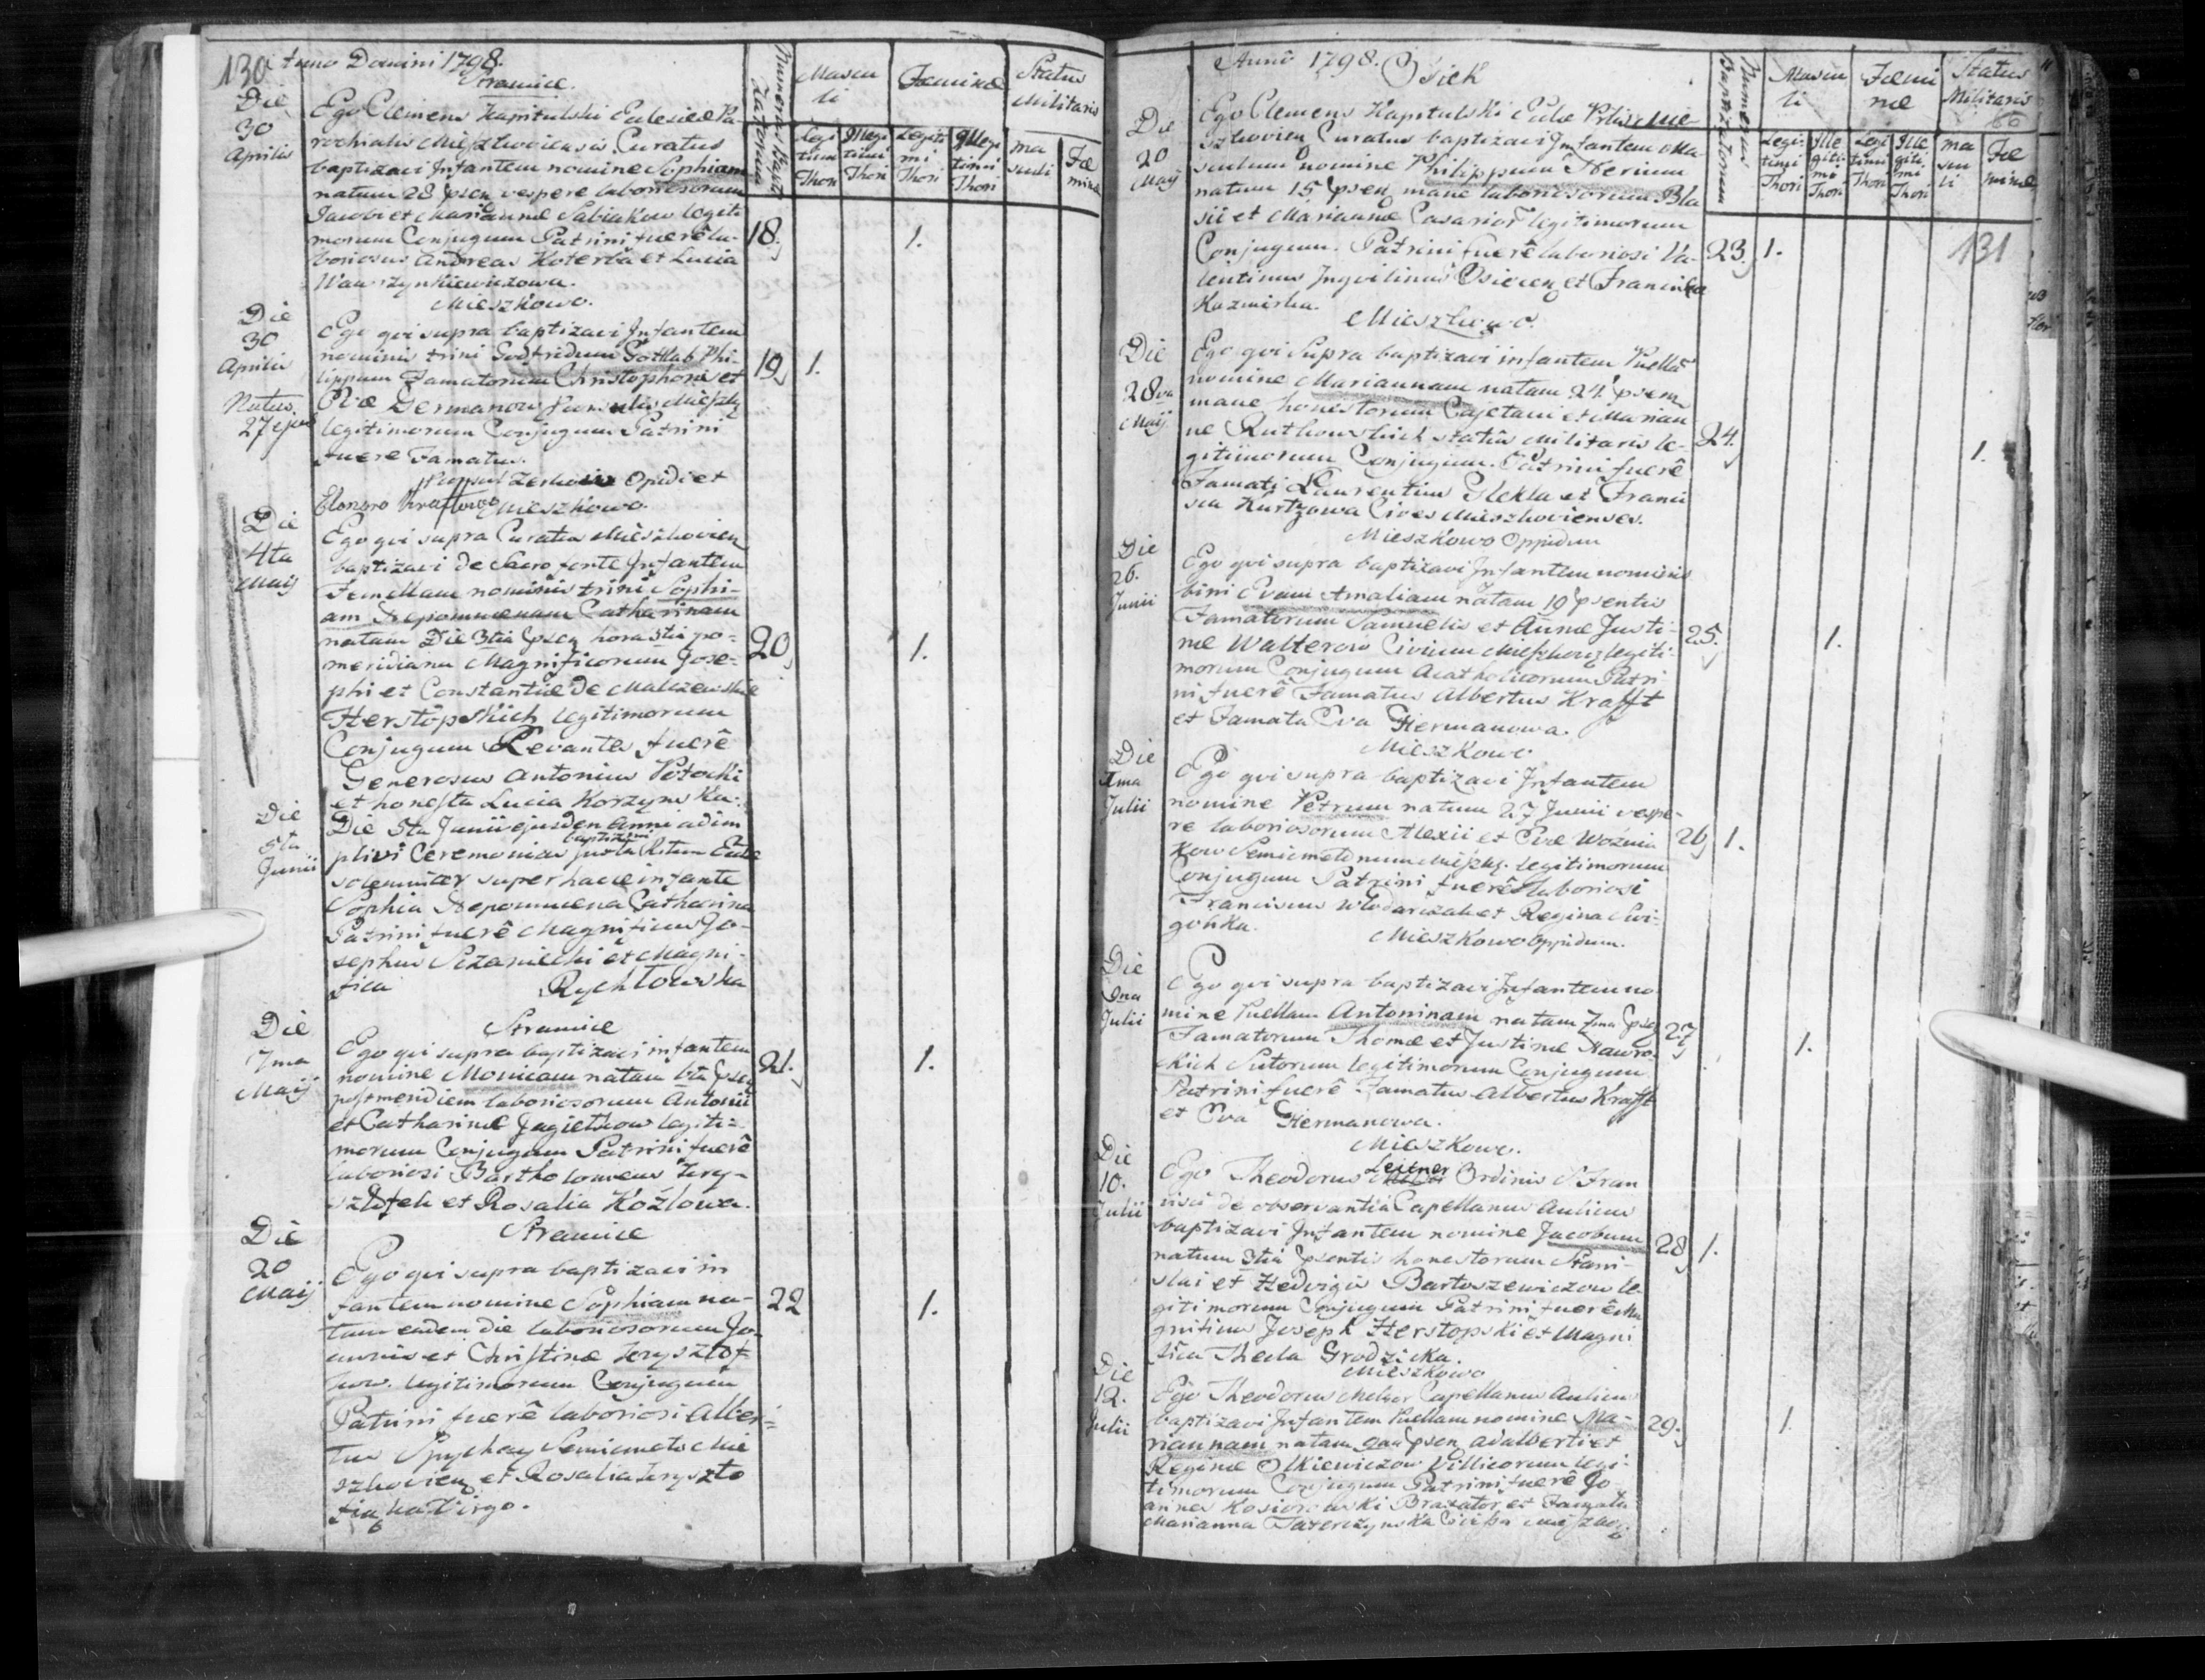 130 Anno Domini 1798.
Numerus Baptizatorum
Masculi
Faeminae
Status Militaris
Legitimi Thori
Illegitimi Thori
Legitimi Thori
Illegitimi Thori
masculi
Faeminae
Stramice.
Die 30 Aprilis
Ego Clemens Kapitulski Ecclesiae Pa-
rochialis Miesz­koviensis Curatus
baptizavi Infantem nomine Sophiam
natam 28 psen vespere laboriosorum
Jacobi et Mariannae Sabiakow legiti
morum Conjugum Patrini fuerê la-
boriosus Andreas Koterba et Lucia
Wawrzynkiewiczowa.
18. 1.
Mieszkowo.
Die 30 Aprilis
Ego qui supra baptizavi Infantem
nominis trini Godfridum Gottlab Phi-
lippum Famatorum Christophori et
Evae Germanow
legitimorum Conjugum Patrini
fuere Famatus
19 1.
Natus 27
Opidi et
Mieszkowo.
Die 4ta Maij
Ego qui supra Curatus Mieszkovien
baptizavi de Sacro fonte Infantem
Femellam nominis trini Sophi-
am Nepomucenam Catharinam
natam Die 3tia psen hora 5ta po-
meridiana Magnificorum Jose-
phi et Constantiae de Malczewskie
Herstopskich legitimorum
Conjugum Levantes fuerê
Generosus Antonius Potocki
et honesta Lucia Korzyns Ka.
20 1.
Die 5ta Junii
Die 5ta Junii ejusdem Anni adim
plevi Ceremonias baptismi juxta Ritum Eccle
solemniter super hacce infante
Sophia Nepomucena Catharina
Patrini fuerê Magnificus Jo-
sephus Sczaniecki et Magni-
fica Rychlowska
Stramice
Die 7ma Maij
Ego qui supra baptizavi infantem
nomine Monicam natam 6ta psen
postmeridiem laboriosorum Antonii
et Catharinae Jagielkow legiti-
morum Conjugum Patrini fuerê
laboriosi Bartholomeus Kry-
sztofek et Rosalia Kozlowa.
21. 1.
Stramice
Die 20 Maij
Ego qui supra baptizavi in
fantem nomine Sophiam na-
tam eadem die laboriosorum Jo-
annis et Christinae Krysztof
kow. legitimorum Conjugum
Patrini fuerê laboriosi Alber-
tus Spychay Semicmeto Mie
szkovien et Rosalia Kryszto
fia ka Virgo.
22 1.
Anno 1798. Osiek
Numerus Baptizatorum
Masculi
Faeminae
Status Militaris
66
Legitimi Thori
Illegitimi Thori
Legitimi Thori
Illegitimi Thori
masculi
Faeminae
131
Die 20 Maij
Ego Clemens Kapitulski Eccle Prlis Mie
szkovien Curatus baptizavi Infantem Ma-
sculum nomine Philippum Nerium
natum 15 psen mane laboriosorum Bla
sii et Mariannae Casarior legitimorum
Conjugum. Patrini fuerê laboriosi Va-
lentinus Inqvilinus Osiecen et Francisca
Kazmirka.
23. 1.
Mieszkowo.
Die 28va Maij
Ego qui Supra baptizavi infantem Puellã
nomine Mariannam natam 24 psem
mane honestorum Cajetani et Marian
ne Rutkowskich statûs Militaris le-
gitimorum Conjugum. Patrini fuerê
Famati Laurentius Plekta et Franci
sca Kurtzowa Cives Mieszkovienses.
24. 1.
Mieszkowo Oppidum
Die 26. Junii
Ego qui supra baptizavi Infantem nominis
bini Evam Amaliam natam 19 psentis
Famatorum Samuelis et Annae Justi-
nae Walterow Civium Mieszkovien legiti-
morum Conjugum Acatholicorum Patri
ni fuerê Famatus Albertus Krafft
et Famata Eva Hermanowa.
25. 1.
Mieszkowo
Die 1ma Julii
Ego qui supra baptizavi Infantem
nomine Petrum natum 27 Junii vespe-
re laboriosorum Alexii et Evae Woznia
kow Semicmetonum legitimorum
Conjugum Patrini fuerê laboriosi
Franciscus Wlodarczak et Regina Swi-
gonka.
26 1.
Mieszkowo Oppidum.
Die Julii
Ego qui supra baptizavi Infantem no
mine Puellam Antoninam natam 7ma psen
Famatorum Thomae et Justinae Nawro-
ckich Sutorum legitimorum Conjugum
Patrini fuerê Famatus Albertus Krafft
et Eva Hermanowa.
27 1.
Mieszkowo.
Die 10. Julii
Ego Theodorus Leitner Ordinis S Fran
cisci de observantia Capellanus Aulicus
baptizavi Infantem nomine Jacobum
natum 3tia psentis honestorum Stani-
slai et Hedvigis Bartoszewiczow le-
gitimorum Conjugum Patrini fuerê Ma
gnificus Joseph Herstopski et Magni
fica Thecla Grodzicka.
28 1.
Mieszkowo
Die 12. Julii
Ego Theodorus Capellanus Aulicus
baptizavi Infantem Puellam nomine Ma-
riannam natam psen Adalberti et
Reginae Olkiewiczow Villicorum legi-
timorum Conjugum Patrini fuerê Jo-
annes Kosiorowski Braxator et Famata
Marianna
29. 1.